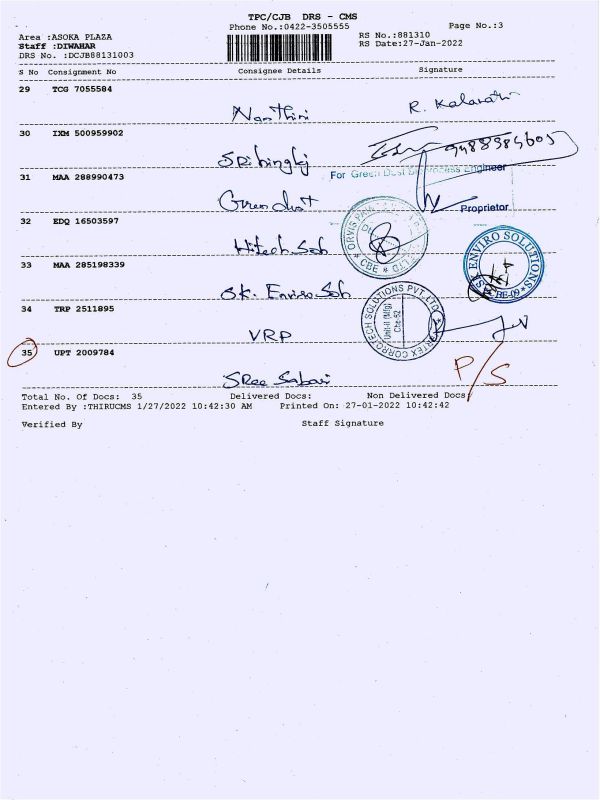 TPC/CJB DRS - CMS
Phone No.:0422-3505555 Page No.:3
Area :ASOKA PLAZA RS No.:881310
Staff :DIWAHAR RS Date:27-Jan-2022
DRS No. :DCJB88131003
S No Consignment No Consignee Details Signature
29 TCG 7055584
Nanthini R. Kalavathi
30 IXM 500959902
9488985605
31 MAA 288990473
For Green Dust Engineer
Green dust
Proprietor
32 EDQ 16503597
Hitech Sob
CBE
33 MAA 285198339
SK ENVIRO SOLUTIONS
SK. Enviro Sob
34 TRP 2511895
CORROTECH SOLUTIONS PVT. LTD
VRP
35 UPT 2009784
P/S
Sree Sabari
Total No. Of Docs: 35 Delivered Docs: Non Delivered Docs:
Entered By :THIRUCMS 1/27/2022 10:42:30 AM Printed On: 27-01-2022 10:42:42
Verified By Staff Signature